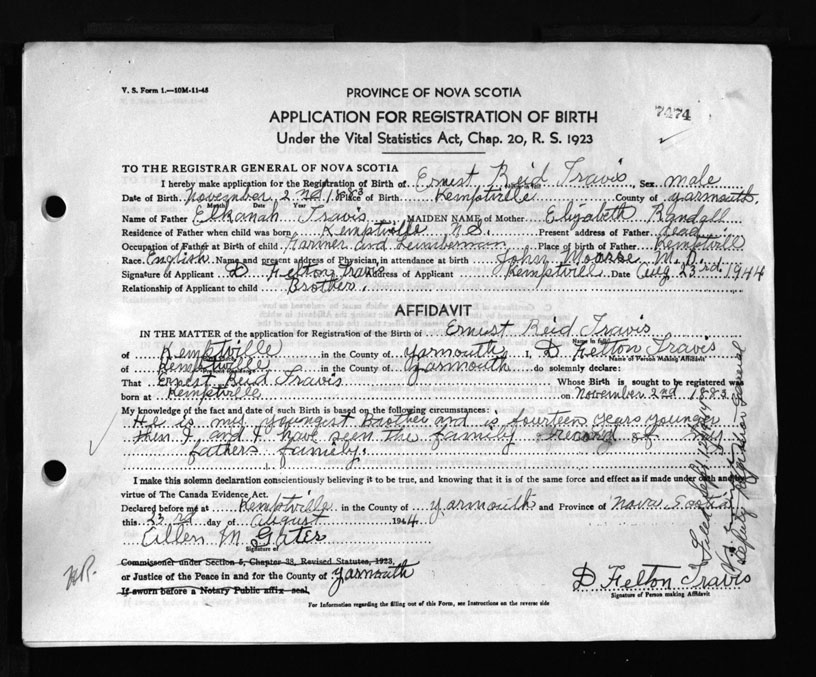 V. S. Form 1.—10M-11-43
PROVINCE OF NOVA SCOTIA
7474
APPLICATION FOR REGISTRATION OF BIRTH
Under the Vital Statistics Act, Chap. 20, R. S. 1923
TO THE REGISTRAR GENERAL OF NOVA SCOTIA
I hereby make application for the Registration of Birth of Ernest Reid Travis Sex male
Date of Birth November 2nd 1883 Place of Birth Kemptville County of Yarmouth.
Month Date Year
Name of Father Elkanah Travis MAIDEN NAME of Mother Elizabeth Randall
Residence of Father when child was born Kemptville N.S. Present address of Father dead
Occupation of Father at Birth of child Farmer and Lumberman Place of birth of Father Kemptvill
Race English Name and present address of Physician in attendance at birth John M. D.
Signature of Applicant D Felton Travis Address of Applicant Kemptvill Date Aug 23rd. 1944
Relationship of Applicant to child Brother
AFFIDAVIT
IN THE MATTER of the application for Registration of the Birth of Ernest Reid Travis
Name in full
of Kemptville in the County of Yarmouth I, D Felton Travis
Name of Person Making Affidavit
of Kemptville in the County of Yarmouth do solemnly declare:
That Ernest Reid Travis Whose Birth is sought to be registered was
born at Kemptville on November 2nd 1883
My knowledge of the fact and date of such Birth is based on the following circumstances:
He is my youngist Brother and is fourteen years younger
then I and I have seen the famiely record of my
fathers famiely.
I make this solemn declaration conscientiously believing it to be true, and knowing that it is of the same force and effect as if made under oath and by
virtue of The Canada Evidence Act.
Declared before me at Kemptville in the County of Yarmouth and Province of Nova Scotia
this 23rd day of August 1944
Eillen M Gates
Signature of
Commissoner under Section 5, Chapter 38, Revised Statutes, 1923,
or Justice of the Peace in and for the County of Yarmouth
If sworn before a Notary Public affix seal
HR.
D Felton Travis
Signature of Person making Affidavit
For Information regarding the filling out of this Form, see Instructions on the reverse side
Deputy Registrar General